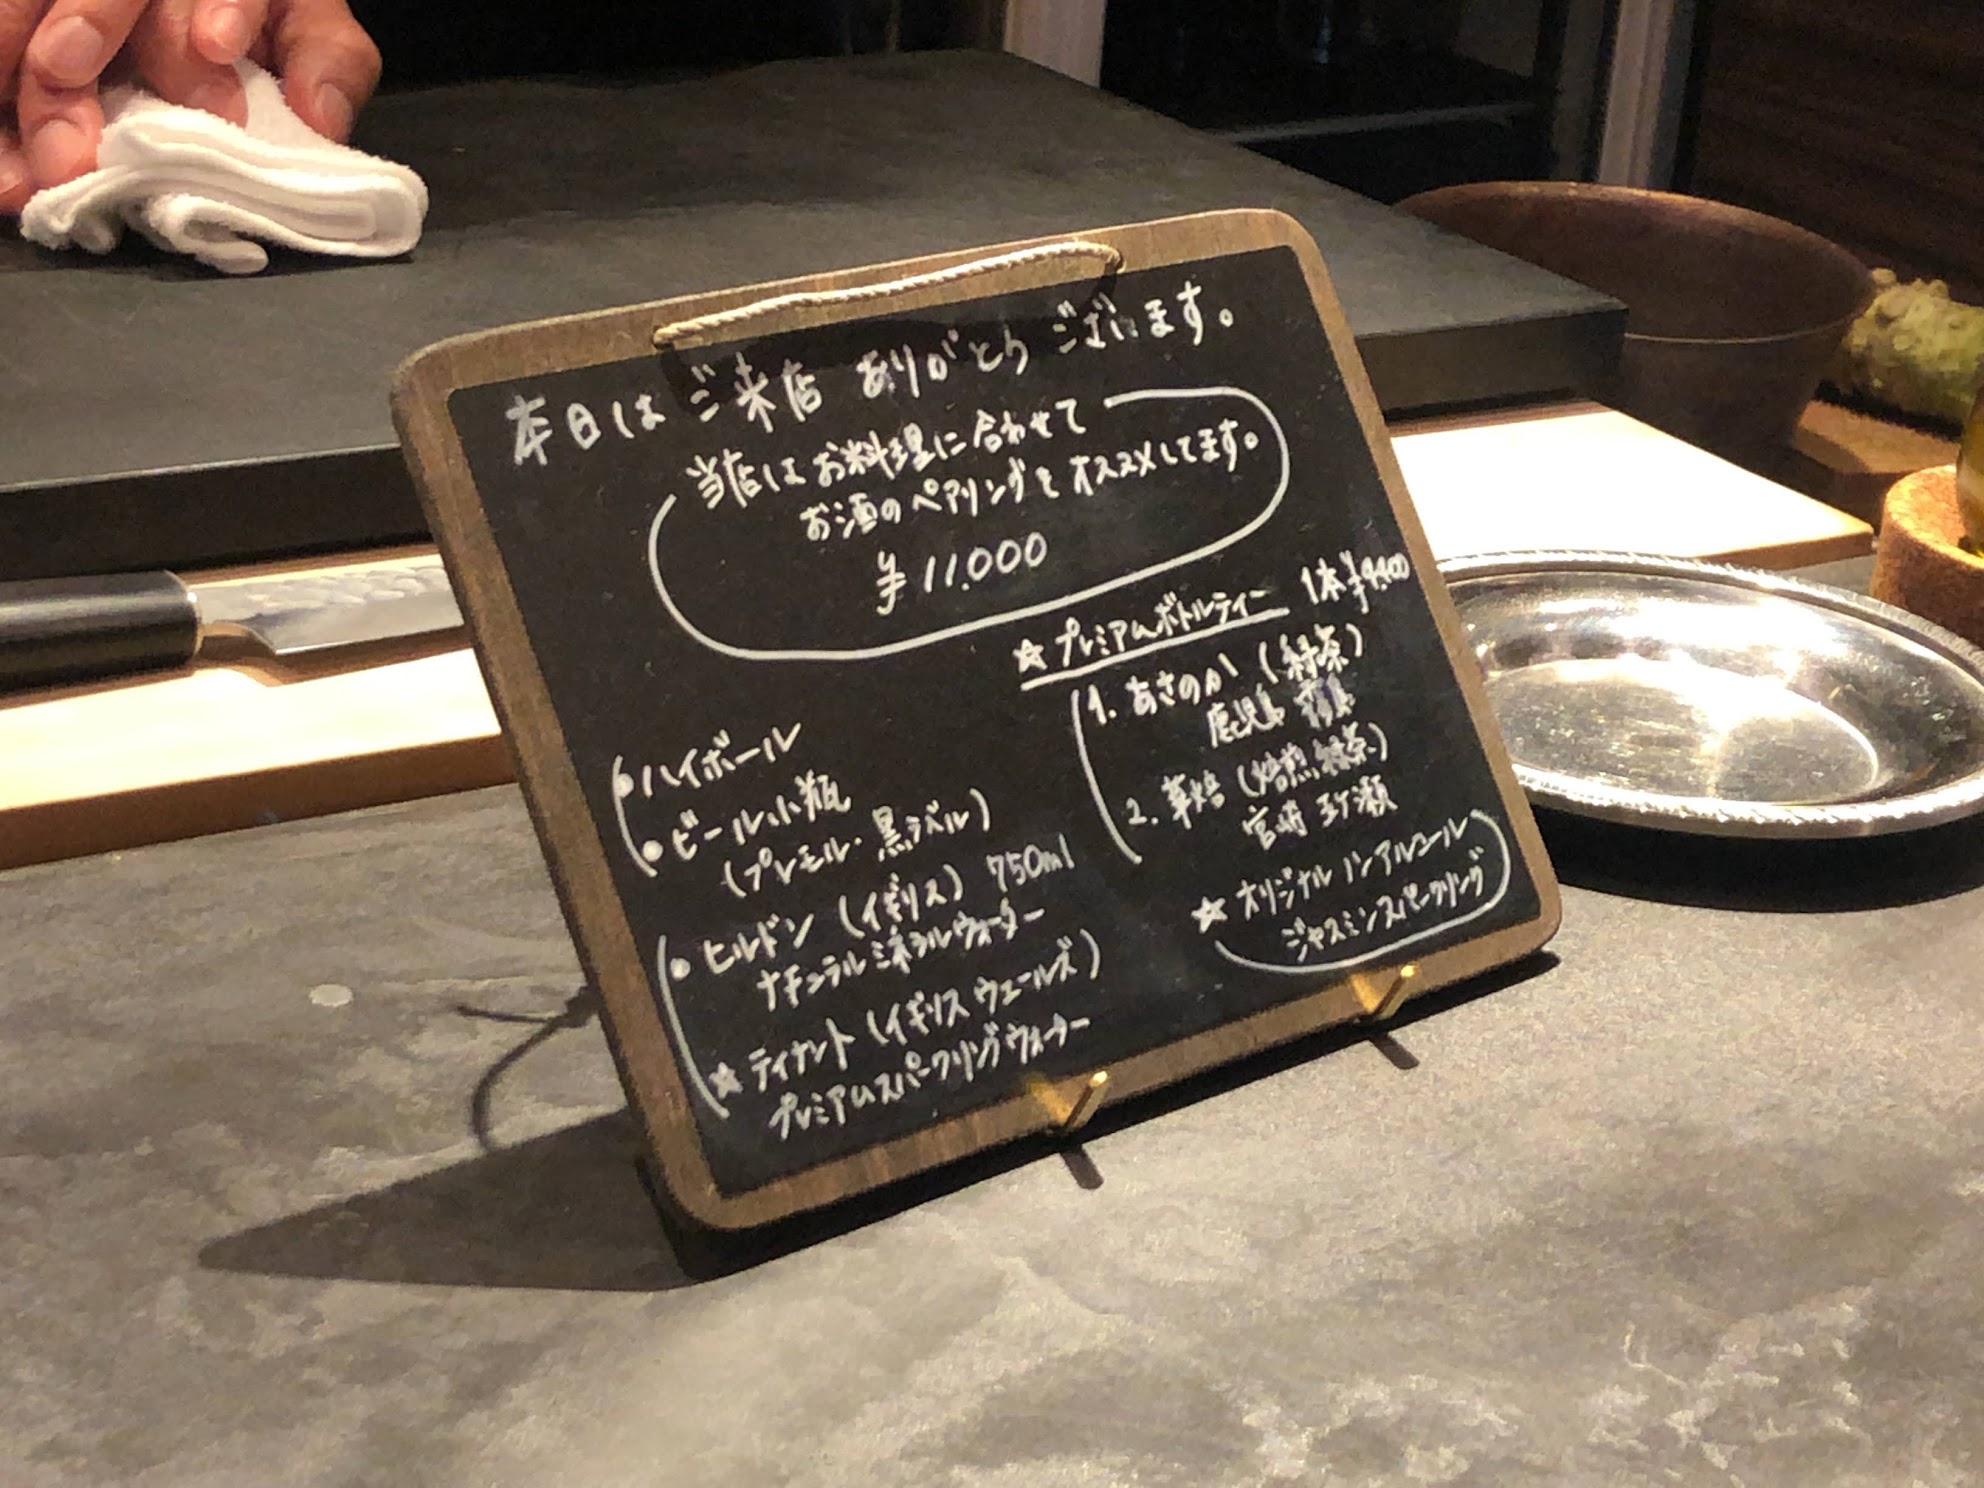 本日は ご来店 ありがとうございます。
当店は お料理に合わせて
お酒のペアリングを オススメしてます。
¥11.000
☆ プレミアムボトルティー 1本 ¥4,400
1. あさのか (緑茶)
鹿児島 霧島
2. 草焙 (焙煎緑茶)
宮崎 五ヶ瀬
☆ オリジナル ノンアルコール
ジャスミンスパークリング
• ハイボール
• ビール小瓶
(プレモル・黒ラベル)
• ヒルドン (イギリス) 750ml
ナチュラルミネラルウォーター
☆ ティナント (イギリス ウェールズ)
プレミアムスパークリングウォーター